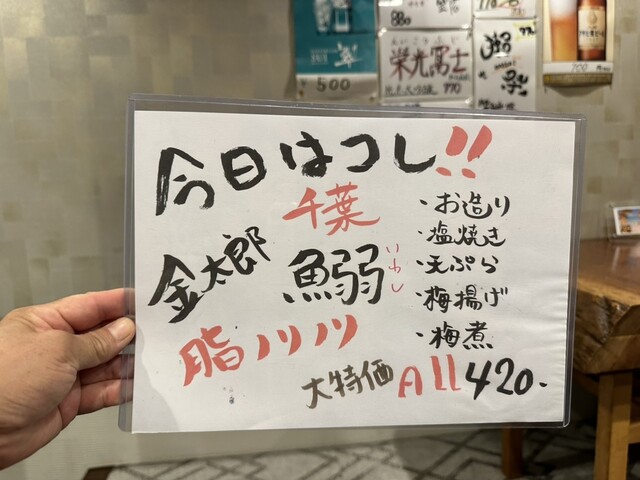 500
880
栄光冨士
770
700
今日はコレ!!
千葉
金太郎
鰯
いわし
脂ノリノリ
・お造り
・塩焼き
・天ぷら
・梅揚げ
・梅煮
大特価 All 420.-